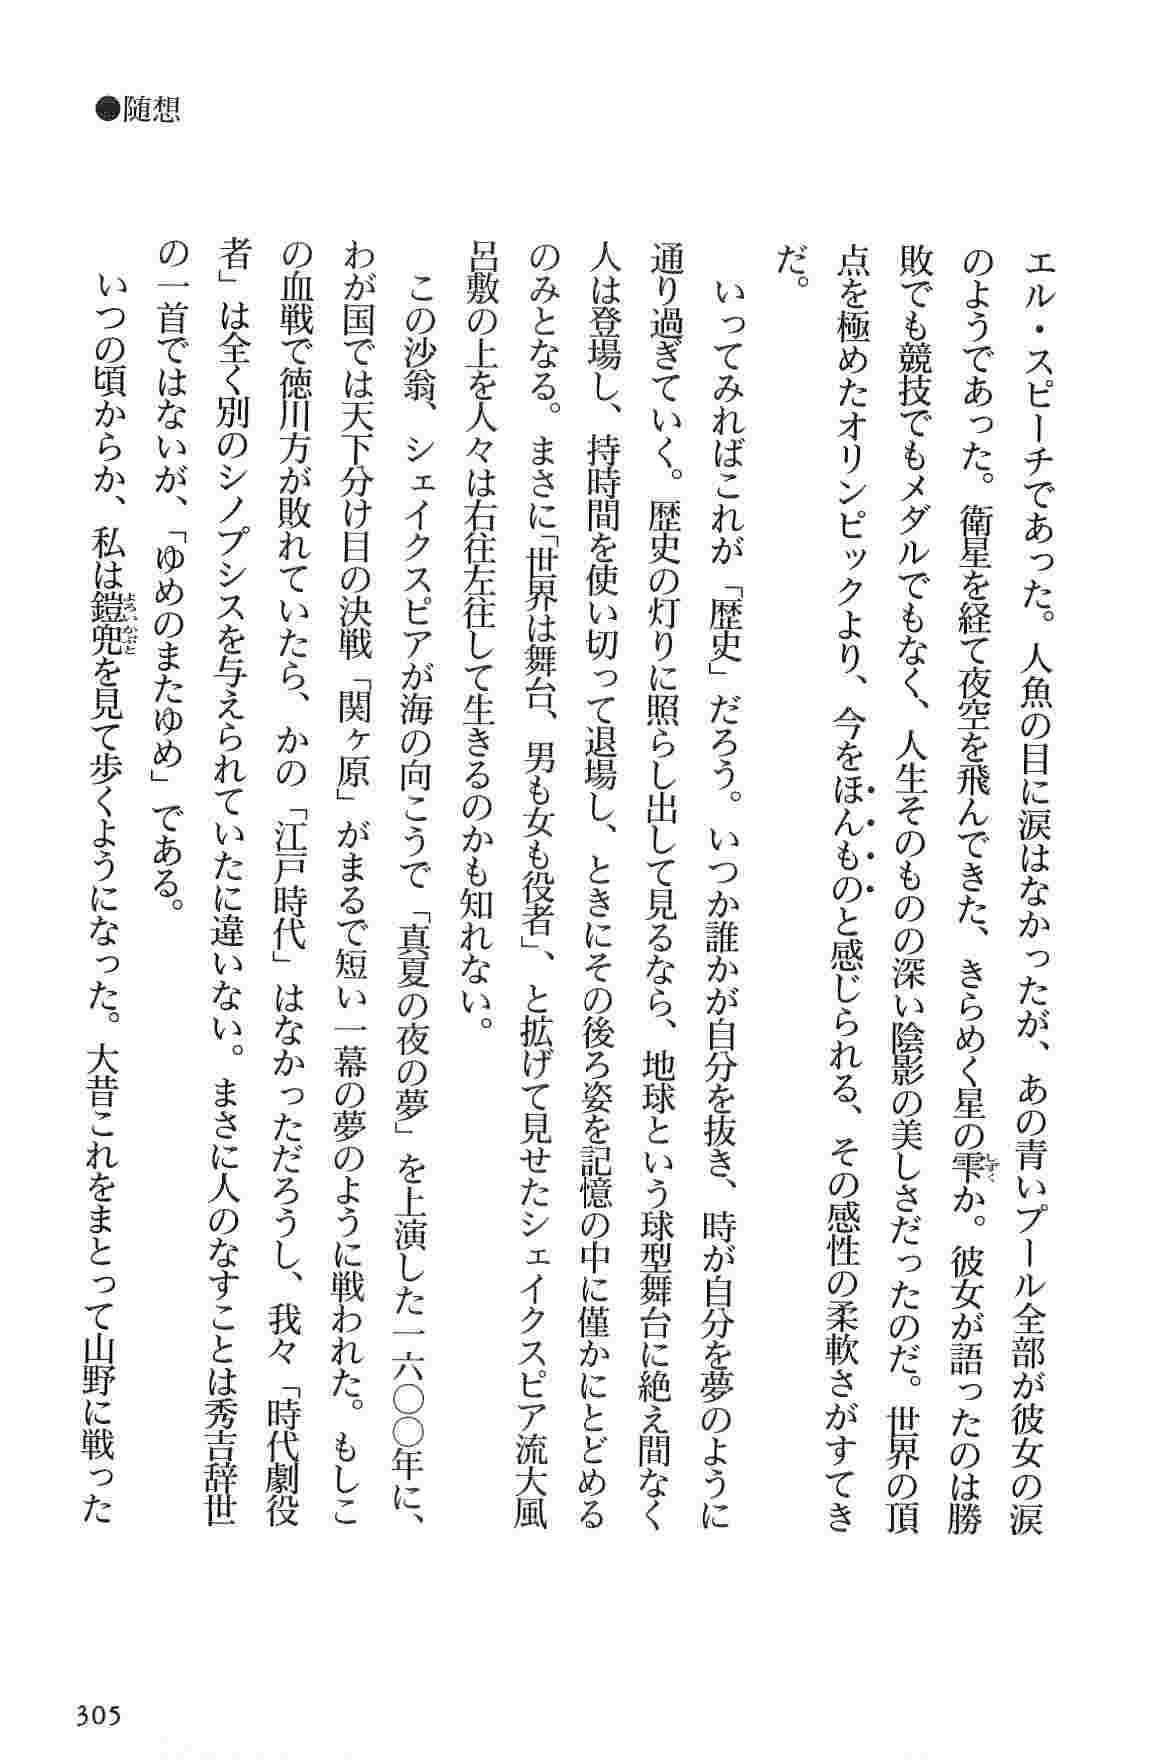 ●随想
エル・スピーチであった。人魚の目に涙はなかったが、あの青いプール全部が彼女の涙
のようであった。衛星を経て夜空を飛んできた、きらめく星の雫か。彼女が語ったのは勝
敗でも競技でもメダルでもなく、人生そのものの深い陰影の美しさだったのだ。世界の頂
点を極めたオリンピックより、今をほんものと感じられる、その感性の柔軟さがすてき
だ。
いってみればこれが「歴史」だろう。いつか誰かが自分を抜き、時が自分を夢のように
通り過ぎていく。歴史の灯りに照らし出して見るなら、地球という球型舞台に絶え間なく
人は登場し、持時間を使い切って退場し、ときにその後ろ姿を記憶の中に僅かにとどめる
のみとなる。まさに「世界は舞台、男も女も役者」、と拡げて見せたシェイクスピア流大風
呂敷の上を人々は右往左往して生きるのかも知れない。
この沙翁、シェイクスピアが海の向こうで「真夏の夜の夢」を上演した一六〇〇年に、
わが国では天下分け目の決戦「関ヶ原」がまるで短い一幕の夢のように戦われた。もしこ
の血戦で徳川方が敗れていたら、かの「江戸時代」はなかっただろうし、我々「時代劇役
者」は全く別のシノプシスを与えられていたに違いない。まさに人のなすことは秀吉辞世
の一首ではないが、「ゆめのまたゆめ」である。
いつの頃からか、私は鎧兜を見て歩くようになった。大昔これをまとって山野に戦った
305